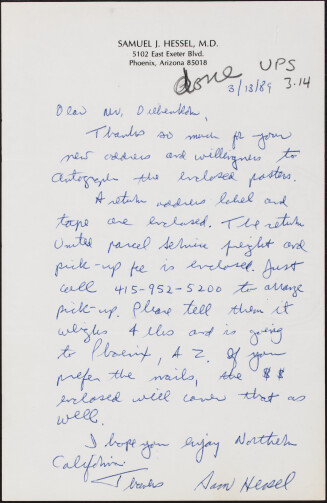 SAMUEL J. HESSEL, M.D.
5102 East Exeter Blvd.
Phoenix, Arizona 85018
done UPS
3/13/89 3.14
Dear Mr. Diebenkorn,
Thanks so much for your
new address and willingness to
autograph the enclosed posters.
A return address label and
tape are enclosed. The return
United parcel service freight and
pick-up fee is enclosed. Just
call 415-952-5200 to arrange
pick-up. Please tell them it
weighs 4 lbs and is going
to Phoenix, AZ. If you
prefer the mails, the $$
enclosed will cover that as
well.
I hope you enjoy Northern
California.
Thanks
Sam Hessel